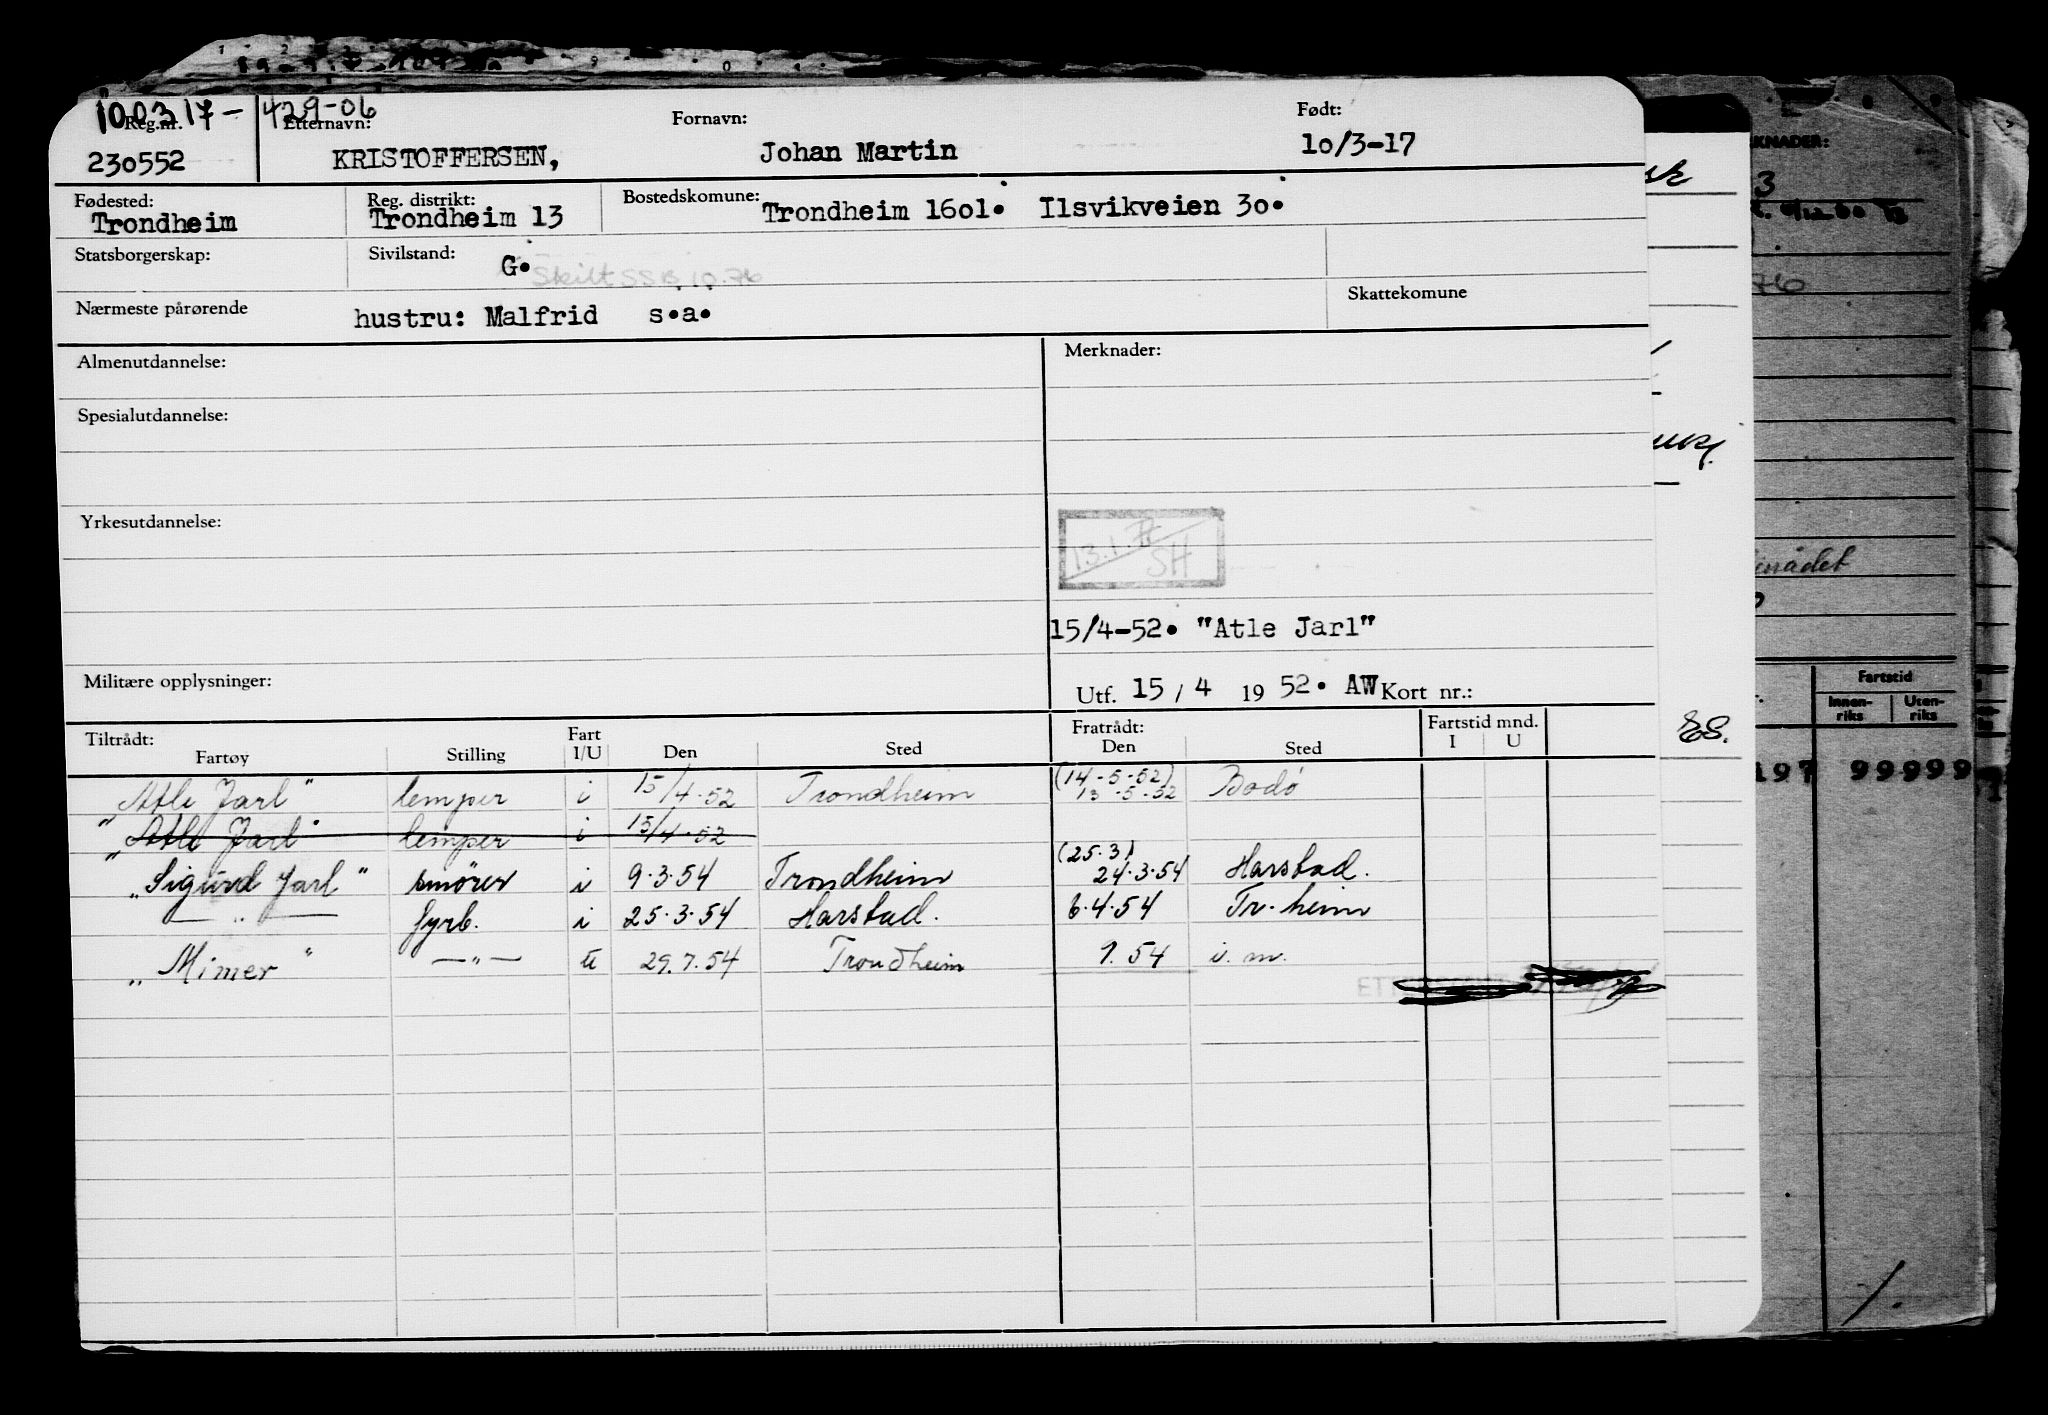 100317-42906
Reg.nr. Etternavn: Fornavn: Født:
230552 KRISTOFFERSEN, Johan Martin 10/3-17
Fødested: Reg. distrikt: Bostedskomune:
Trondheim Trondheim 13 Trondheim 1601. Ilsvikveien 30.
Statsborgerskap: Sivilstand: G. Skilt SSB 10.76
Nærmeste pårørende hustru: Malfrid s.a. Skattekomune
Almenutdannelse: Merknader:
Spesialutdannelse:
Yrkesutdannelse:
13.1.
SH
15/4-52. "Atle Jarl"
Militære opplysninger: Utf. 15/4 1952. AW Kort nr.:
Tiltrådt: Fart Fratrådt: Fartstid mnd.
Fartøy Stilling I/U Den Sted Den Sted I U
"Atle Jarl" lemper i 15/4.52 Trondheim (14-5-52) 13-5-52 Bodø
"Atle Jarl" lemper i 15/4.52
"Sigurd Jarl" smører i 9.3.54 Trondheim (25.3) 24.3.54 Harstad.
— " — fyrb. i 25.3.54 Harstad. 6.4.54 Tr.heim
"Mimer" — " — u 29.7.54 Trondheim 1.54 i.m.
KNADER:
3
76
Fartstid
Innen-riks Uten-riks
197 99999